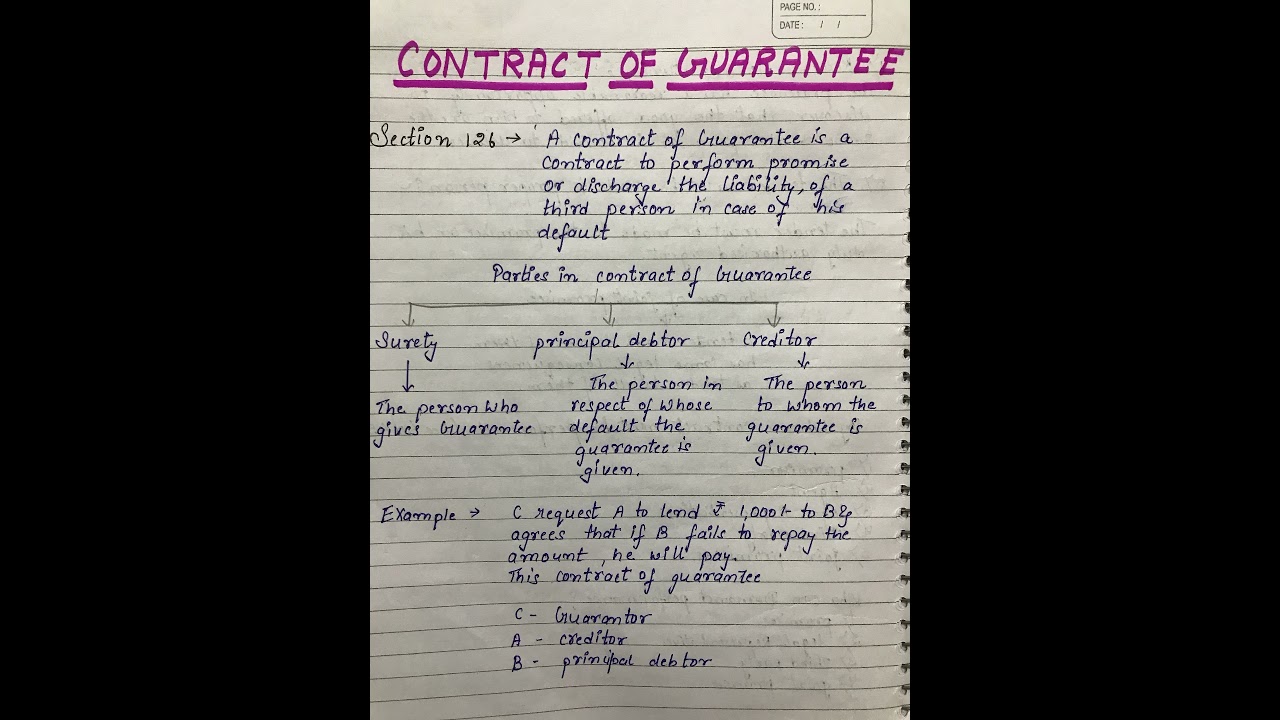 PAGE NO.:
DATE: / /
CONTRACT OF GUARANTEE
Section 126 → A contract of Guarantee is a
contract to perform promise
or discharge the liability, of a
third person in case of his
default
Parties in contract of Guarantee
Surety principal debtor creditor
The person who
gives Guarantee
The person in
respect of whose
default the
guarantee is
given.
The person
to whom the
guarantee is
given.
Example → C request A to lend ₹ 1,000/- to B &
agrees that if B fails to repay the
amount, he will pay.
This contract of guarantee
C - Guarantor
A - creditor
B - principal debtor